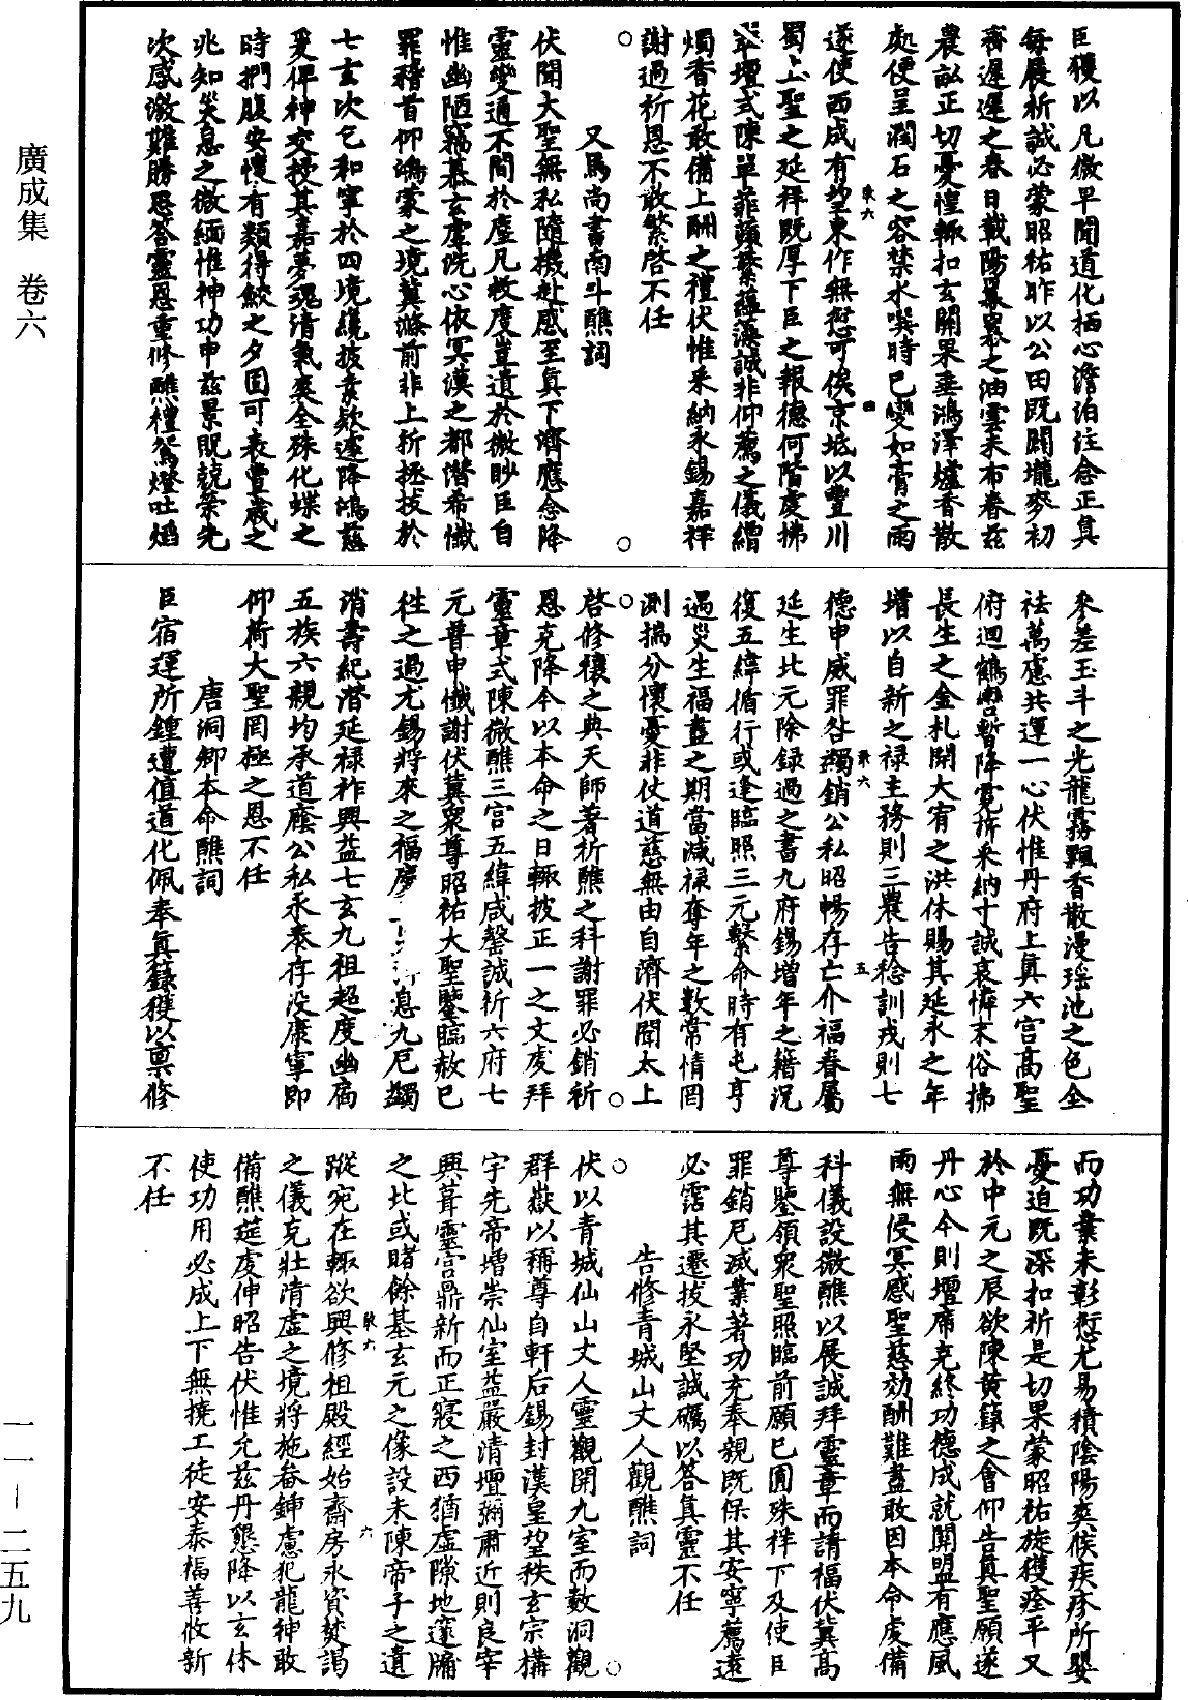 廣成集　卷六
臣獲以凡微早聞道化栖心澹泊注念正真
每展祈誠必蒙昭祐昨以公田既闢壠麥初
齊遲遲之春日載陽羃羃之油雲未布眷茲
農畝正切憂惶輙扣玄關果垂鴻澤爐香散
處便呈潤石之容禁水噀時已變如膏之雨
遂使西成有望東作無愆可俟京坻以豐川
蜀上聖之延祥既厚下臣之報德何階虔拂
單壇式陳單菲蘋蘩蘊藻誠非仰薦之儀繒
燭香花敢備上酬之禮伏惟釆納永錫嘉祥
謝過祈恩不敢繁啓不任
又馬尚書南斗醮詞
伏聞大聖無私隨機赴感至真下濟應念降
靈變通不間於塵凡救度豈遺於微眇臣自
惟幽陋竊慕玄虛洗心依冥漠之都潜希懺
罪稽首仰鴻蒙之境冀滌前非上祈拯拔於
七玄次乞和寧於四境纔披素欵遽降鴻慈
爰俾神交授其嘉夢魂清氣爽全殊化蝶之
時捫腹安懷有類得鮫之夕固可表豐歲之
兆知災息之徵緬惟神功申茲景貺兢榮先
次感激難勝恩答靈恩重修醮禮鴛燈吐熖
參差玉斗之光龍霧飄香散漫瑶池之色全
祛萬慮共運一心伏惟丹府上真六宮髙聖
俯迴鶴轡暫降霓旌釆納寸誠哀憐末俗拂
長生之金札開大宥之洪休賜其延永之年
增以自新之禄主務則三農告稔訓戎則七
德申威罪咎蠲銷公私昭暢存亡介福眷屬
延生比元除録過之書九府錫增年之籍況
復五緯循行或逢臨照三元繫命時有屯亨
遇災生福盡之期當減禄奪年之數常情罔
測揣分懷憂非仗道慈無由自濟伏聞太上
啓修禳之典天師著祈醮之科謝罪必銷祈
恩克降今以本命之日輙披正一之文虔拜
靈章式陳微醮三宮五緯咸罄誠祈六府七
元普申懺謝伏冀衆尊昭祐大聖鑒臨赦已
往之過尤錫將來之福慶
息九厄蠲
消壽紀潜延禄祚興益七玄九祖超度幽扃
五族六親均承道廕公私永泰存没康寧即
仰荷大聖罔極之恩不任
唐洞卿本命醮詞
臣宿運所鍾遭值道化佩奉真籙獲以禀修
而功業未彰愆尤易積陰陽爽候疾疹所嬰
憂迫既深扣祈是切果蒙昭祐旋獲痊平又
於中元之辰欲陳黄籙之會仰告真聖願遂
丹心今則壇席克終功德成就開盟有應風
雨無侵冥感聖慈効酬難盡敢因本命虔備
科儀設微醮以展誠拜靈章而請福伏冀髙
尊鑒領衆聖照臨前願已圓殊祥下及使臣
罪銷厄滅業著功充奉親既保其安寧薦遠
必霑其遷拔永堅誠礪以答真靈不任
告修青城山丈人觀醮詞
伏以青城仙山丈人靈觀開九室而數洞觀
群嶽以稱尊自軒后錫封漢皇望秩玄宗構
宇先帝增崇仙室益嚴清壇彌肅近則良宰
興葺靈宫鼎新而正寢之西猶虛隙地邃牖
之北或睹餘基玄元之像設未陳帝子之遺
蹤宛在輙欲興修祖殿經始齋房永資焚謁
之儀克壯清虛之境將施畚鍤慮犯龍神敢
備醮莚虔伸昭告伏惟允茲丹懇降以玄休
使功用必成上下無撓工徒安泰福善攸新
不任
一一—二五九